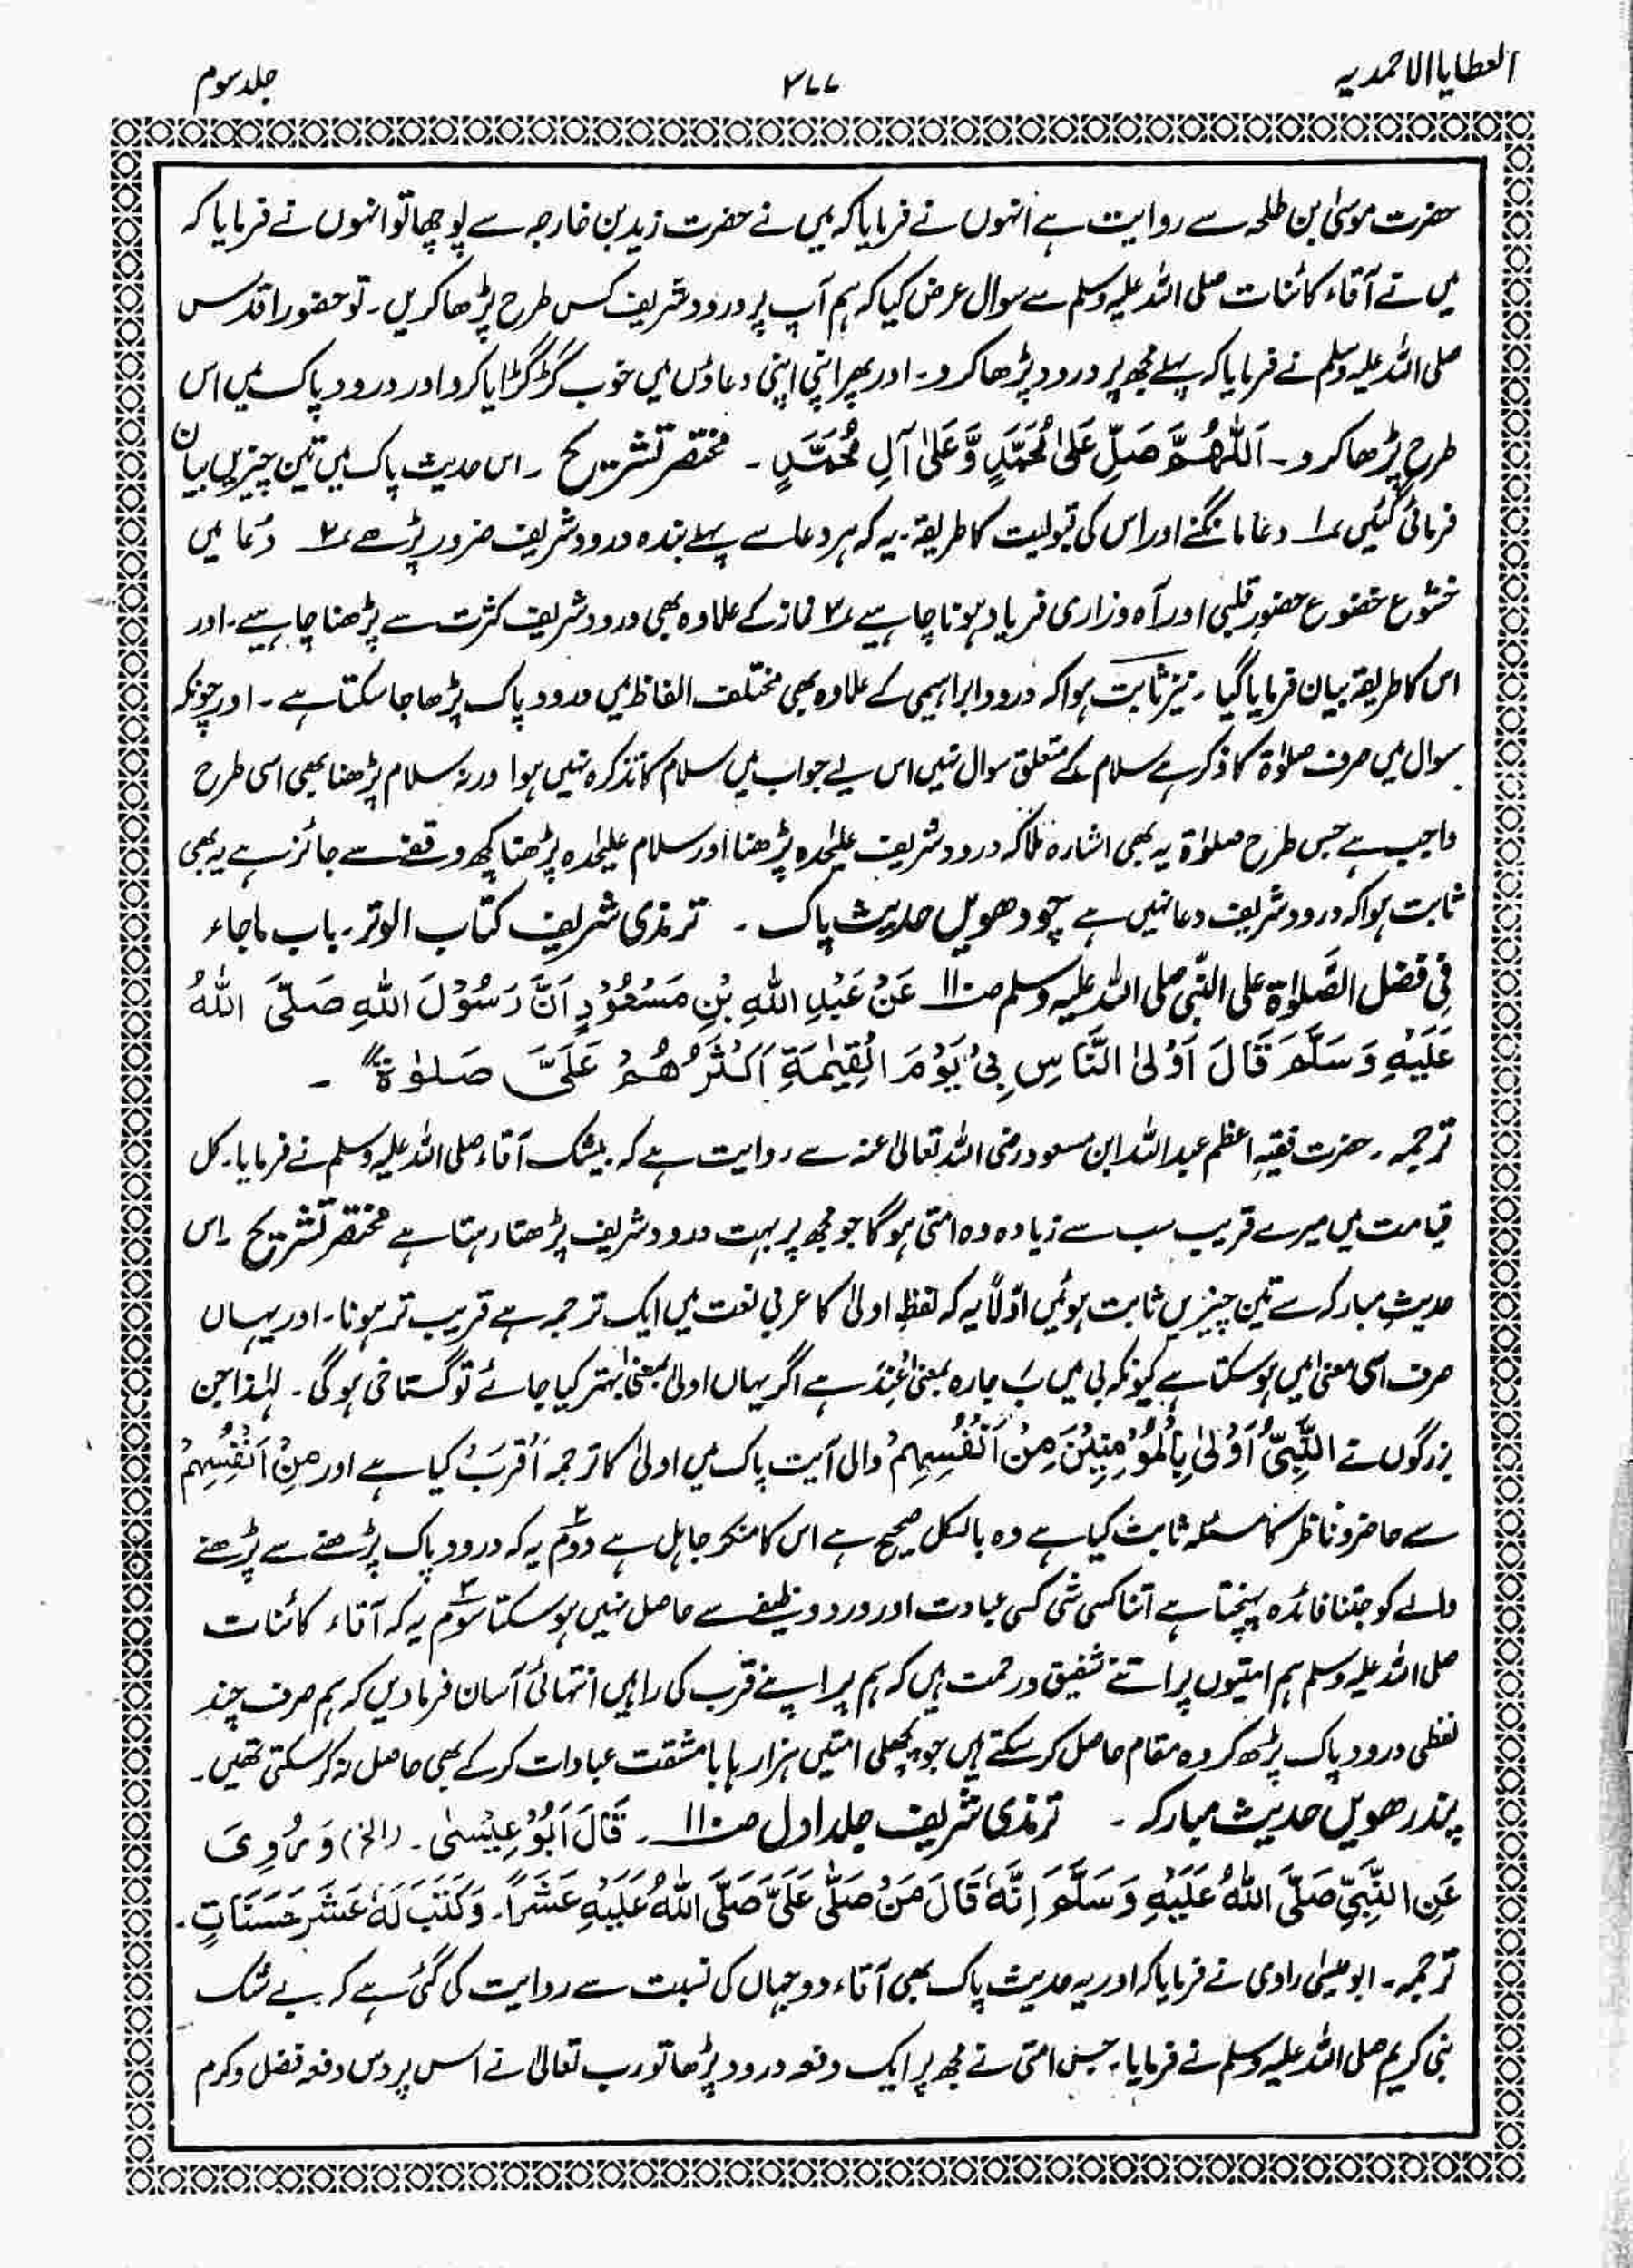 العطایا الاحمدیہ
۲۷۷
جلد سوم
حضرت موسیٰ ابن طلحہ سے روایت ہے انہوں نے فرمایا کہ میں نے حضرت زید بن خارجہ سے پوچھا تو انہوں نے فرمایا کہ
میں نے آقاء کائنات صلی اللہ علیہ وسلم سے سوال عرض کیا کہ ہم آپ پر درود شریف کس طرح پڑھا کریں۔ تو حضور اقدس
صلی اللہ علیہ وسلم نے فرمایا کہ پہلے مجھ پر درود پڑھا کرو۔ اور پھر اپنی اپنی دعاؤں میں خوب گڑگڑایا کرو اور درود پاک میں اس
طرح پڑھا کرو۔ اَللّٰهُمَّ صَلِّ عَلیٰ مُحَمَّدٍ وَّ عَلیٰ آلِ مُحَمَّدٍ ۔ مختصر تشریح ۔ اس حدیث پاک میں تین چیزیں بیان
فرمائی گئیں ۱؎ دعا مانگنے اور اس کی قبولیت کا طریقہ۔ یہ کہ ہر دعا سے پہلے بندہ درود شریف ضرور پڑھے ۲؎ دُعا میں
خشوع خضوع حضورِ قلبی اور آہ وزاری فریاد ہونا چاہیے ۳؎ نماز کے علاوہ بھی درود شریف کثرت سے پڑھنا چاہیے۔ اور
اس کا طریقہ بیان فرمایا گیا ۔ نیز ثابت ہوا کہ درود ابراہیمی کے علاوہ بھی مختلف الفاظ میں درود پاک پڑھا جا سکتا ہے ۔ اور چونکہ
سوال میں صرف صلوٰۃ کا ذکر ہے سلام کے متعلق سوال نہیں اس لیے جواب میں سلام کا تذکرہ نہیں ہوا ورنہ سلام پڑھنا بھی اسی طرح
واجب ہے جس طرح صلوٰۃ یہ بھی اشارہ ملا کہ درود شریف علیٰحدہ پڑھنا اور سلام علیٰحدہ پڑھنا کچھ وقفے سے جائز ہے یہ بھی
ثابت ہوا کہ درود شریف دعا نہیں ہے چودھویں حدیث پاک ۔ ترمذی شریف کتاب الوتر۔ باب ماجاء
فِی فضل الصَّلوٰۃ علی النَّبی صلی اللہ علیہ وسلم صـ۱۱۰ عَنْ عَبْدِ اللهِ بْنِ مَسْعُوْدٍ اَنَّ رَسُوْلَ اللهِ صَلَّی اللهُ
عَلَيْهِ وَسَلَّمَ قَالَ اَوْلیٰ النَّاسِ بِیْ یَوْمَ الْقِیٰمَةِ اَكْثَرُهُمْ عَلَیَّ صَلوٰةً ۔
ترجمہ ۔ حضرت فقیہِ اعظم عبداللہ ابن مسعود رضی اللہ تعالیٰ عنہ سے روایت ہے کہ بیشک آقاء صلی اللہ علیہ وسلم نے فرمایا۔ کل
قیامت میں میرے قریب سب سے زیادہ وہ امتی ہوگا جو مجھ پر بہت درود شریف پڑھتا رہتا ہے مختصر تشریح ۔ اس
حدیثِ مبارکہ سے تین چیزیں ثابت ہوئیں اوّلاً یہ کہ لفظِ اولیٰ کا عربی لغت میں ایک ترجمہ ہے قریب تر ہونا۔ اور یہاں
صرف اسی معنیٰ میں ہو سکتا ہے کیونکہ بی میں بَ جارہ بمعنیٰ عِنْدَ ہے اگر یہاں اولیٰ بمعنیٰ بہتر کیا جائے تو گستاخی ہوگی ۔ لہٰذا جن
بزرگوں نے النَّبِیُّ اَوْلیٰ بِالْمُؤْمِنِیْنَ مِنْ اَنْفُسِهِمْ والی آیت پاک میں اولیٰ کا ترجمہ اَقْرَبُ کیا ہے اور مِنْ اَنْفُسِهِمْ
سے حاضر و ناظر کا مسئلہ ثابت کیا ہے وہ بالکل صحیح ہے اس کا منکر جاہل ہے دوم ۲ یہ کہ درود پاک پڑھنے سے پڑھنے
والے کو جتنا فائدہ پہنچتا ہے اتنا کسی شی کسی عبادت اور ورد وظیفے سے حاصل نہیں ہو سکتا سوم ۳ یہ کہ آقاء کائنات
صلی اللہ علیہ وسلم ہم امتیوں پر اتنے شفیق و رحمت ہیں کہ ہم پر اپنے قرب کی راہیں انتہائی آسان فرما دیں کہ ہم صرف چند
لفظی درود پاک پڑھ کر وہ مقام حاصل کر سکتے ہیں جو پچھلی امتیں ہزار ہا با مشقت عبادات کر کے بھی حاصل نہ کر سکتی تھیں۔
پندرھویں حدیث مبارکہ ۔ ترمذی شریف جلد اول صـ۱۱۰ ۔ قَالَ اَبُوْ عِیْسیٰ ۔ (الخ) وَ رُوِیَ
عَنِ النَّبِیِّ صَلَّی اللهُ عَلَیْهِ وَسَلَّمَ اِنَّهٗ قَالَ مَنْ صَلّٰی عَلَیَّ صَلَّی اللهُ عَلَیْهِ عَشَرًا۔ وَكَتَبَ لَهٗ عَشَرَ حَسَنَاتٍ۔
ترجمہ۔ ابو عیسیٰ راوی نے فرمایا کہ اور یہ حدیث پاک بھی آقاء دو جہاں کی نسبت سے روایت کی گئی ہے کہ بے شک
نبی کریم صلی اللہ علیہ وسلم نے فرمایا۔ جس امتی نے مجھ پر ایک دفعہ درود پڑھا تو رب تعالیٰ نے اس پر دس دفعہ فضل و کرم